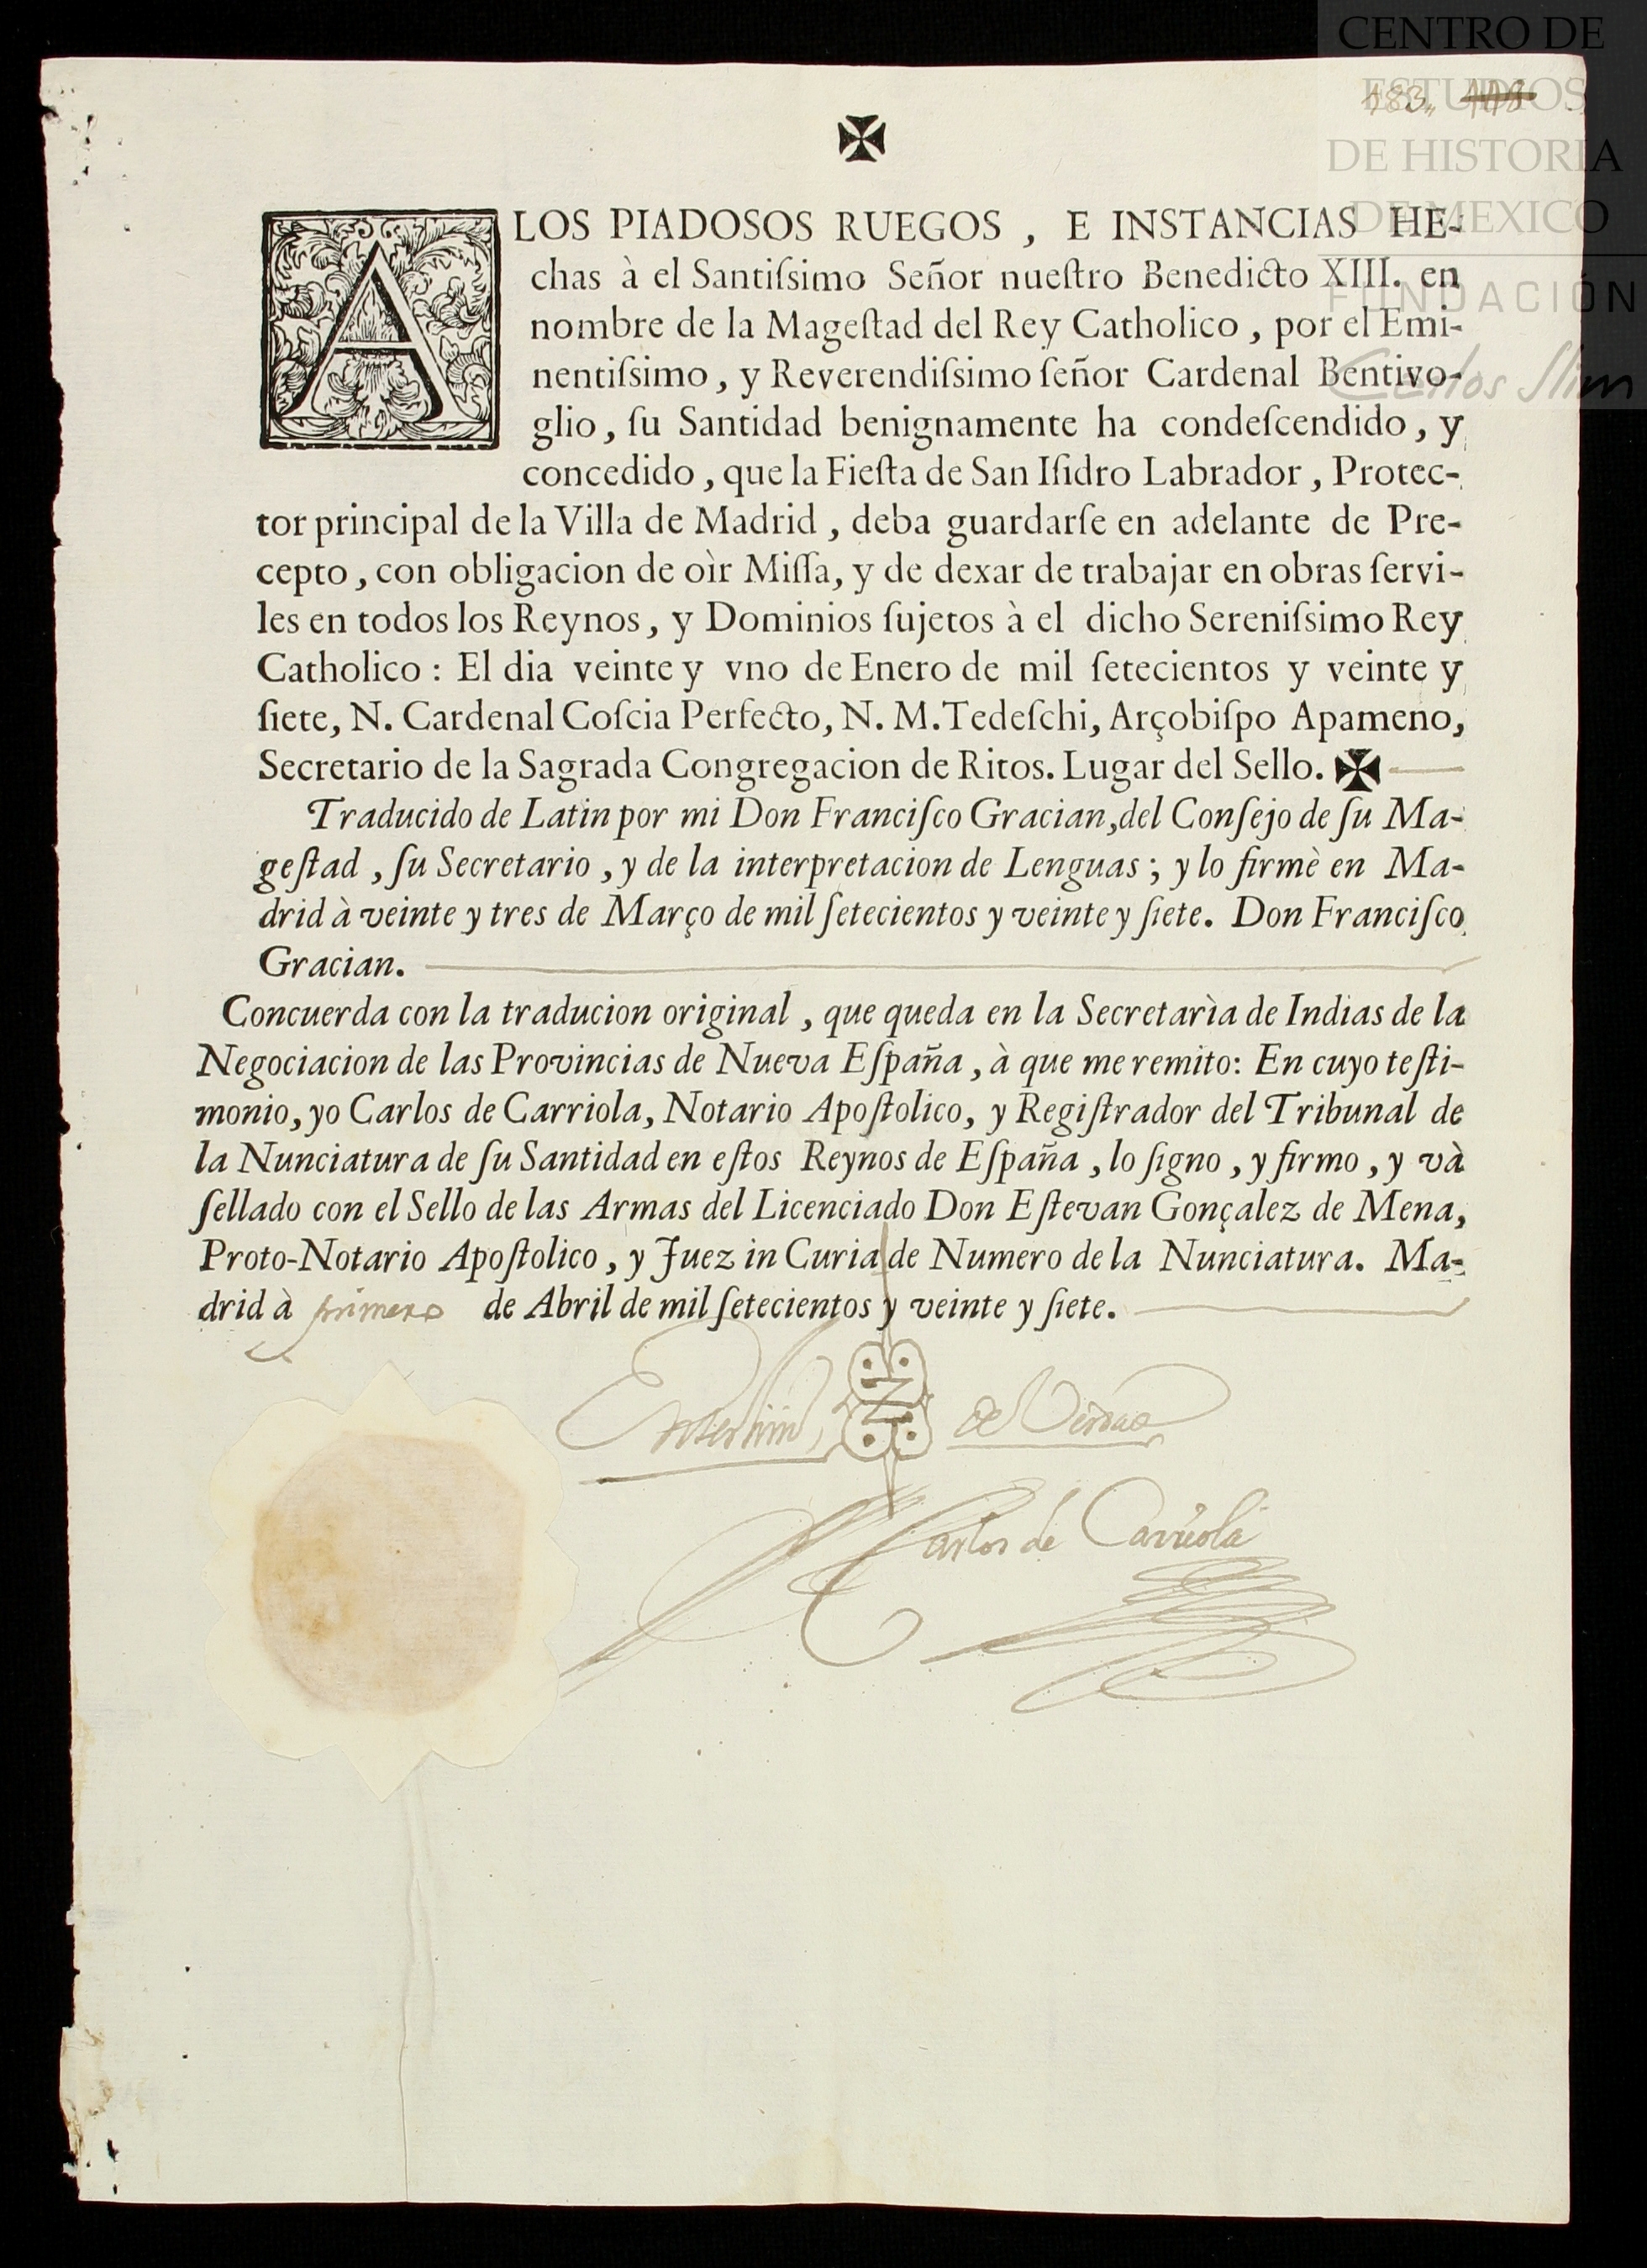 CENTRO DE
ESTUDIOS
DE HISTORIA
DE MEXICO
FUNDACIÓN
Carlos Slim
183.
✠
A LOS PIADOSOS RUEGOS, E INSTANCIAS HE-
chas à el Santiſsimo Señor nueſtro Benedicto XIII. en
nombre de la Mageſtad del Rey Catholico, por el Emi-
nentiſsimo, y Reverendiſsimo ſeñor Cardenal Bentivo-
glio, ſu Santidad benignamente ha condeſcendido, y
concedido, que la Fieſta de San Iſidro Labrador, Protec-
tor principal de la Villa de Madrid, deba guardarſe en adelante de Pre-
cepto, con obligacion de oìr Miſſa, y de dexar de trabajar en obras ſervi-
les en todos los Reynos, y Dominios ſujetos à el dicho Sereniſsimo Rey
Catholico: El dia veinte y vno de Enero de mil ſetecientos y veinte y
ſiete, N. Cardenal Coſcia Perfecto, N. M. Tedeſchi, Arçobiſpo Apameno,
Secretario de la Sagrada Congregacion de Ritos. Lugar del Sello. ✠
Traducido de Latin por mi Don Franciſco Gracian, del Conſejo de ſu Ma-
geſtad, ſu Secretario, y de la interpretacion de Lenguas; y lo firmè en Ma-
drid à veinte y tres de Março de mil ſetecientos y veinte y ſiete. Don Franciſco
Gracian.
Concuerda con la traducion original, que queda en la Secretarìa de Indias de la
Negociacion de las Provincias de Nueva Eſpaña, à que me remito: En cuyo teſti-
monio, yo Carlos de Carriola, Notario Apoſtolico, y Regiſtrador del Tribunal de
la Nunciatura de ſu Santidad en eſtos Reynos de Eſpaña, lo ſigno, y firmo, y và
ſellado con el Sello de las Armas del Licenciado Don Eſtevan Gonçalez de Mena,
Proto-Notario Apoſtolico, y Juez in Curia de Numero de la Nunciatura. Ma-
drid à primero de Abril de mil ſetecientos y veinte y ſiete.
de Verdad
Carlos de Carriola